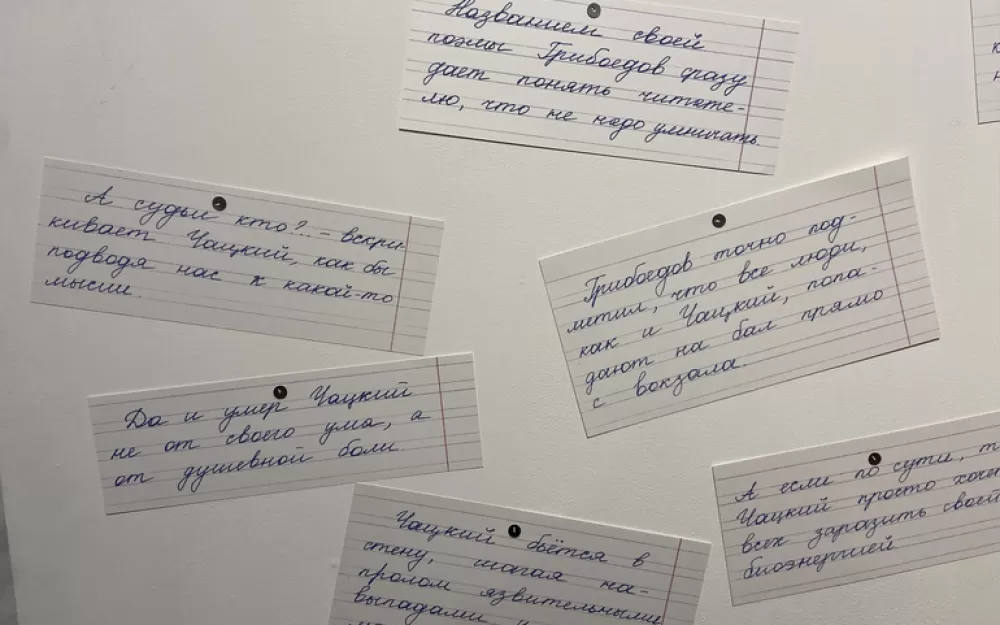 Названием своей
поэмы Грибоедов сразу
дает понять читате-
лю, что не надо умничать.
А судьи кто?.. - вскри
кивает Чацкий, как бы
подводя нас к какой-то
мысли.
Грибоедов точно под-
метил, что все люди,
как и Чацкий, попа-
дают на бал прямо
с вокзала.
Да и умер Чацкий
не от своего ума, а
от душевной боли.
Чацкий бьётся в
стену, шагая на-
пролом язвительными
выпадами
А если по сути, т
Чацкий просто хочет
всех заразить своей
биоэнергией